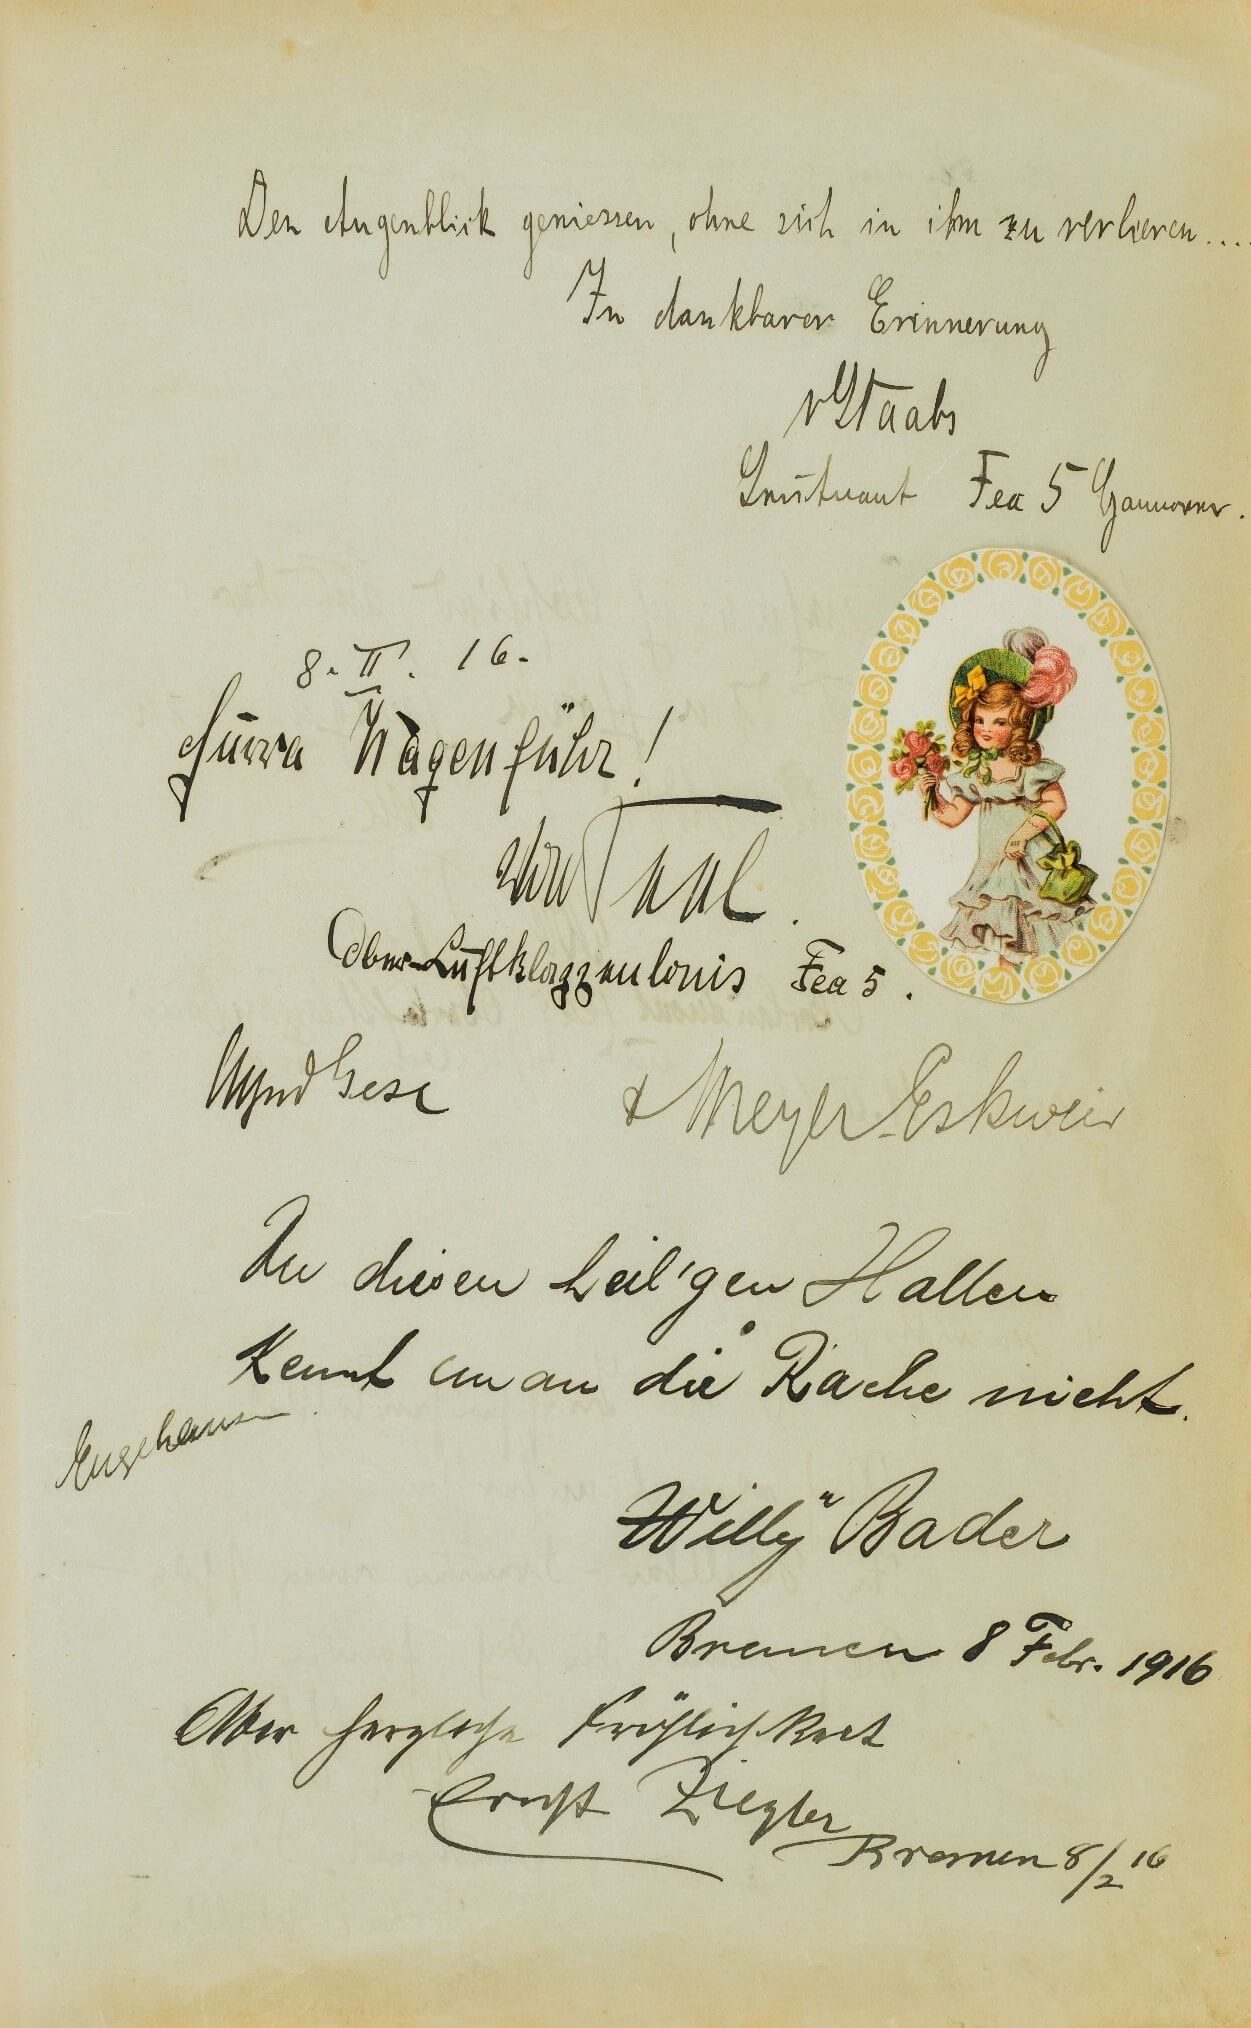 Den Augenblick geniessen, ohne sich in ihm zu verlieren....
In dankbarer Erinnerung
v Staabs
Leutnant Fea 5 Hannover.
8. II. 16.
Hurra Wagenführ!
Ober-Luft Fea 5.
& Meyer-Eskweir
In diesen heil'gen Hallen
Kennt man die Rache nicht.
Engehausen
"Willy" Bader
Bremen 8 Febr. 1916
Aber herzliche Fröhlichkeit
Ernst Ziegler
Bremen 8/2 16